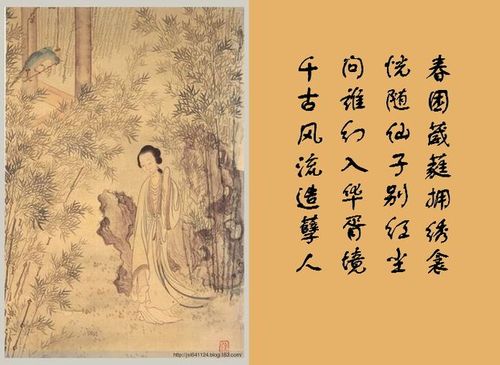 春困葳蕤拥绣衾
恍随仙子别红尘
问谁幻入华胥境
千古风流造孽人
http://jsl641124.blog.163.com/